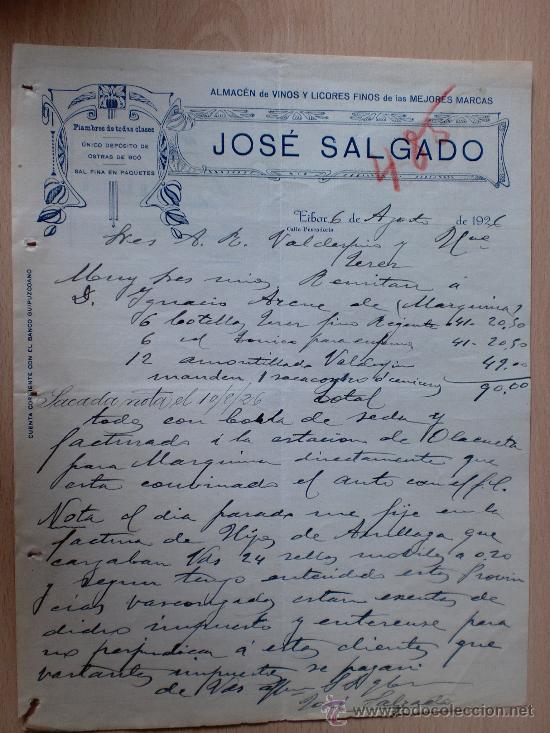 ALMACÉN de VINOS Y LICORES FINOS de las MEJORES MARCAS
Fiambres de todas clases
ÚNICO DEPÓSITO DE
OSTRAS DE BOÓ
SAL FINA EN PAQUETES
JOSÉ SALGADO
485
Eibar 6 de Agosto de 1926
Calle Pescadería
CUENTA CORRIENTE CON EL BANCO GUIPUZCOANO
Sres A. R. Valdespino y Hno
Jerez
Muy Sres mios Remitan a
D. Ignacio de (Marquina)
6 botellas Jerez fino 41- 20,50
6 id para enfermos 41- 20,50
12 amontillado 49.00
manden 1 sacacorcho 90,00
Sacada nota el 10/8/26 total
todo con de seda y
facturado á la estacion de Olacueta
para Marquina directamente que
esta combinado el auto con el f.c.
Nota el dia pasado me fije en la
factura de Hijos de que
cargaban Vds 24 sellos mobiles a 0,20
y segun tengo entendido estas Provin
cias vascongadas estan exentas de
dicho impuesto y enterense para
no perjudicar á estos clientes que
bastantes impuestos se pagan
de Vds
José Salgado
todocoleccion.net